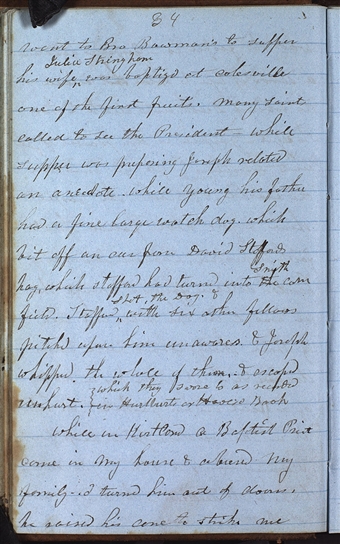 34
went to Bro Bowman's to supper
Julia Stringham
his wife, was baptizd at colesville
one of the first fruits. many saints
called to see the President - while
supper was prepareing Joseph related
an anecdote. while young his father
had a fine large watch dog. which
bit off an ear from David Stafford's
hog, which stafford had turned into the Smith corn
field. Stafford shot the dog. & with six other fellows
pitchd upon him unawares. & Joseph
whipped the whole of them. & escaped
unhurt. which they swore to as recorded
in Hurlburts or Howe's Book
while in Kirtland a Baptist Priest
came in my house & abused my
family - I turned him out of doors.
he raised his cane to strike me